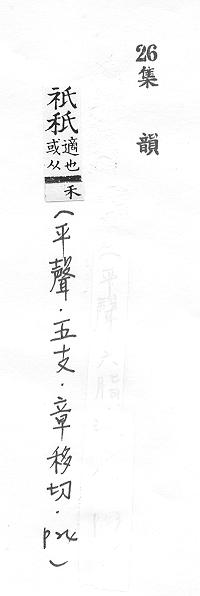 26集 韻
祇秖適也或从禾(平聲．五支．章移切．p24)